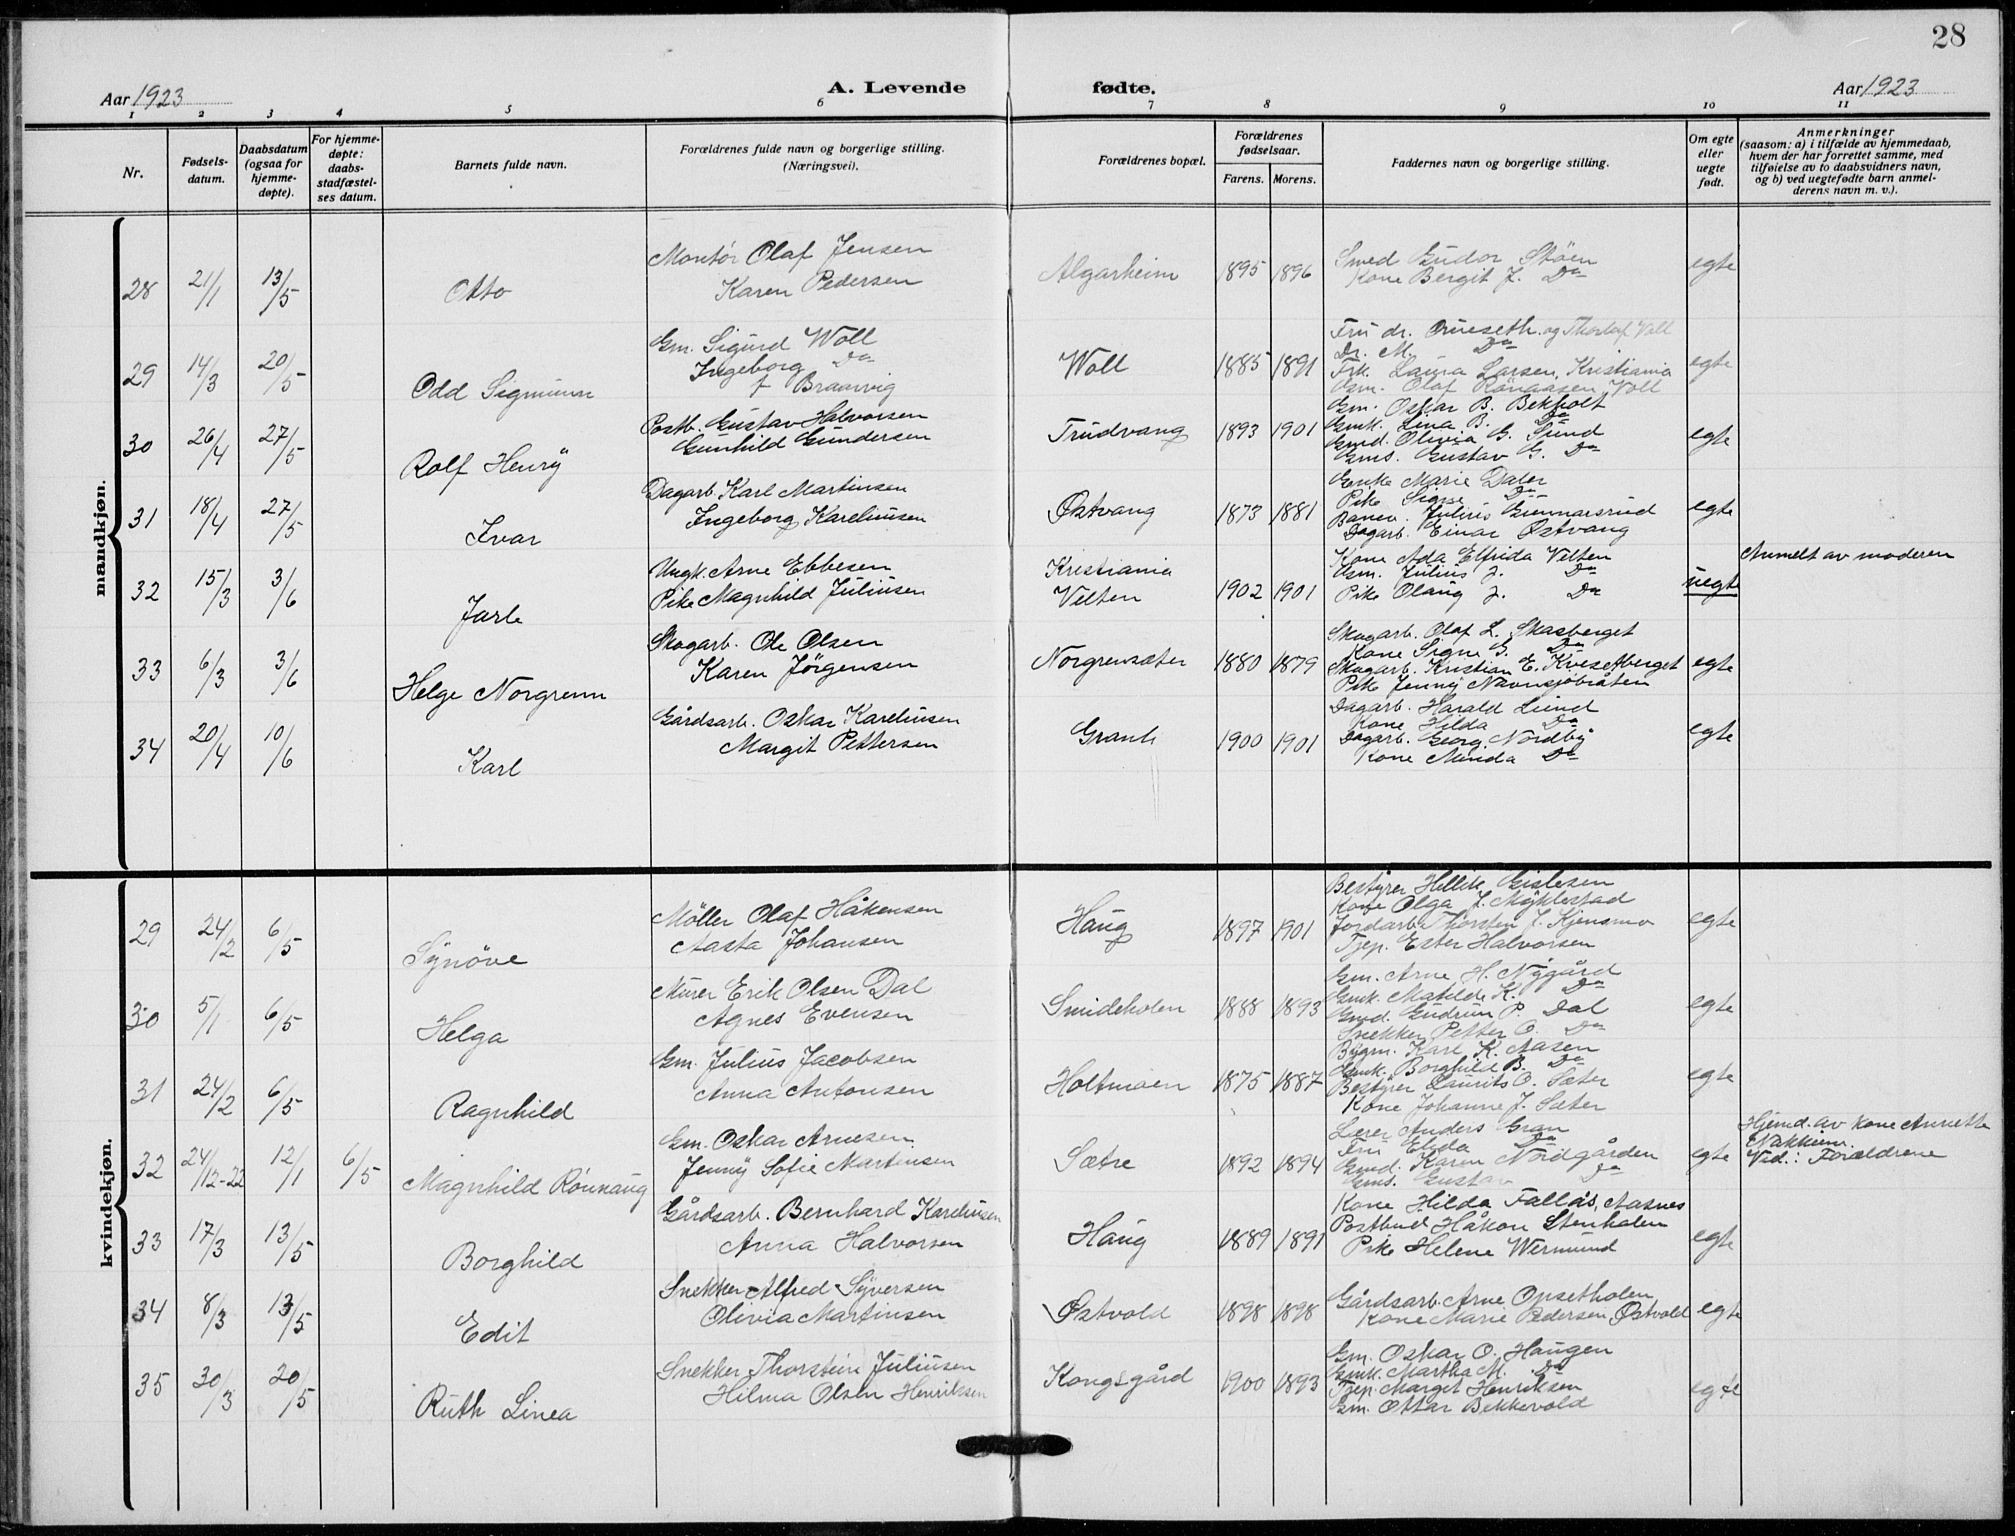 28
Aar 1923
A. Levende
fødte.
Aar 1923
1 2 3 4 5 6 7 8 9 10 11
Nr.
Fødsels-
datum.
Daabsdatum
(ogsaa for
hjemme-
døpte).
For hjemme-
døpte:
daabs-
stadfæstel-
ses datum.
Barnets fulde navn.
Forældrenes fulde navn og borgerlige stilling.
(Næringsvei).
Forældrenes bopæl.
Forældrenes
fødselsaar.
Farens. Morens.
Faddernes navn og borgerlige stilling.
Om egte
eller
uegte
født.
Anmerkninger
(saasom: a) i tilfælde av hjemmedaab,
hvem der har forrettet samme, med
tilføielse av to daabsvidners navn,
og b) ved uegtefødte barn anmel-
derens navn m. v.).
mandkjøn.
28 21/1 13/5 Otto
Montør Olaf Jensen
Karen Pedersen
Algarheim 1895 1896
Smed Gudor Støen
Kone Bergit J. Do
egte
29 14/3 20/5 Odd Sigmunn
Gm. Sigurd Woll
Ingeborg Do
f Braarvig
Woll 1885 1891
Fru dr. Orueseth og Thorlaf Voll
Dr. M. Do
Frk. Laura Larsen, Kristiania
Gsm. Olaf Rånaasen Voll
egte
30 26/4 27/5 Rolf Henry
Postb. Gustav Halvorsen
Gunhild Gundersen
Trudvang 1893 1901
Gm. Oskar B. Bekholt
Gmk. Lina B. Do
Gmd. Olivia G. Sund
Gms. Gustav G. Do
egte
31 18/4 27/5 Ivar
Dagarb. Karl Martinsen
Ingeborg Kareliusen
Østvang 1873 1881
Enke Marie Daler
Pike Signe Do
Banev. Julius Gunnarsrud
Dagarb. Einar Østvang
egte
32 15/3 3/6 Jarle
Ungk. Arne Ebbesen
Pike Magnhild Juliusen
Kristiania
Velten
1902 1901
Kone Ada Elfrida Velten
Gsm. Julius J. Do
Pike Olaug J. Do
uegte
Anmelt av moderen
33 6/3 3/6 Helge Norgrenn
Skogarb. Ole Olsen
Karen Jørgensen
Norgrensæter 1880 1879
Skogarb. Olaf L. Skasberget
Kone Signe G. Do
Skogarb. Kristian E. Kvesetberget
Pike Jenny Navnsjøbråten
egte
34 20/4 10/6 Karl
Gårdsarb. Oskar Kareliusen
Margit Pettersen
Granli 1900 1901
Dagarb. Harald Lund
Kone Hilda Do
Dagarb. Georg Nordby
Kone Minda Do
egte
kvindekjøn.
29 24/2 6/5 Synøve
Møller Olaf Håkensen
Aasta Johansen
Haug 1897 1901
Bestyrer Hellik Gislesen
Kone Olga J. Myklestad
Jordarb. Thorsten J. Kjensmo
Tjep. Ester Halvorsen
egte
30 5/1 6/5 Helga
Murer Erik Olsen Dal
Agnes Evensen
Smideholen 1888 1893
Gm. Arne H. Nygård
Gmk. Matilde K. Do
Gmd. Gudrun P. Dal
Snekker Petter O. Do
egte
31 24/2 6/5 Ragnhild
Gm. Julius Jacobsen
Anna Antonsen
Holtmoen 1875 1887
Bygm. Karl K. Aasen
Gmk. Borghild B. Do
Bestyrer Laurits O. Sæter
Kone Johanne J. Sæter
egte
32 24/12-22 12/1 6/5 Magnhild Rønnaug
Gm. Oskar Arnesen
Jenny Sofie Martinsen
Sætre 1892 1894
Lærer Anders Gran
Fru Elida Do
Gmd. Karen Nordgården
Gms. Gustav Do
egte
Hjemd. av kone Annette
Nakkem.
Vid.: Forældrene
33 17/3 13/5 Borghild
Gårdsarb. Bernhard Kareliusen
Anna Halvorsen
Haug 1889 1891
Kone Hilda Fallås, Aasnes
Postbud Håkon Stenholen
Pike Helene Wermund
egte
34 8/3 13/5 Edit
Snekker Alfred Syversen
Olivia Martinsen
Østvold 1898 1898
Gårdsarb. Arne Opsetholen
Kone Marie Pedersen, Østvold
egte
35 30/3 20/5 Ruth Linea
Snekker Thorstein Juliusen
Hilma Olsen Henriksen
Kongsgård 1900 1893
Gm. Oskar O. Haugen
Gmk. Martha M. Do
Tjep. Marget Henriksen
Gm. Ottar Bekkevold
egte